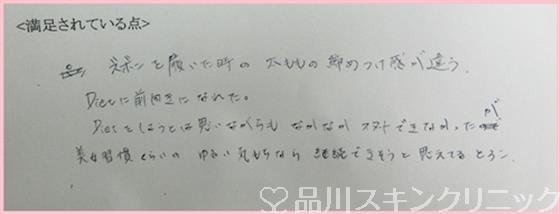 <満足されている点>
ズボンを履いた時の太ももの締めつけ感が違う。
Dietに前向きになれた。
Dietをしようとは思いながらもなかなかスタートできなかったが
美容習慣くらいのゆるい気もちなら継続できそうと思えてるところ。
品川スキンクリニック